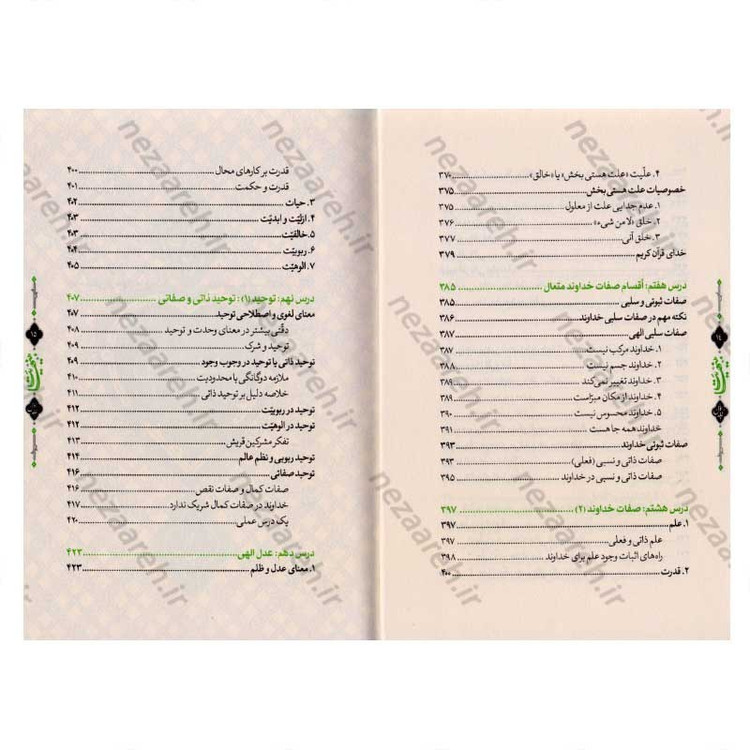 ۴. علّیت «علت هستی بخش» یا «خالق» ........ ۳۷۰
خصوصیات علت هستی بخش ........ ۳۷۵
۱. عدم جدایی علت از معلول ........ ۳۷۵
۲. خلق «لا من شیء» ........ ۳۷۶
۳. خلق آنی ........ ۳۷۷
خدای قرآن کریم ........ ۳۷۹
درس هفتم: أقسام صفات خداوند متعال ........ ۳۸۵
صفات ثبوتی و سلبی ........ ۳۸۵
نکته مهم در صفات سلبی خداوند ........ ۳۸۶
صفات سلبی الهی ........ ۳۸۷
۱. خداوند مرکب نیست ........ ۳۸۷
۲. خداوند جسم نیست ........ ۳۸۸
۳. خداوند تغییر نمی‌کند ........ ۳۸۹
۴. خداوند از مکان مبرّاست ........ ۳۸۹
۵. خداوند محسوس نیست ........ ۳۹۰
خداوند همه جا هست ........ ۳۹۱
صفات ثبوتی خداوند ........ ۳۹۳
صفات ذاتی و نسبی (فعلی) ........ ۳۹۳
صفات ذاتی و نسبی در خداوند ........ ۳۹۵
درس هشتم: صفات خداوند (۲) ........ ۳۹۷
۱. علم ........ ۳۹۷
علم ذاتی و فعلی ........ ۳۹۷
راه‌های اثبات وجود علم برای خداوند ........ ۳۹۸
۲. قدرت ........ ۴۰۰
۱۴
قدرت بر کارهای محال ........ ۴۰۰
قدرت و حکمت ........ ۴۰۱
۳. حیات ........ ۴۰۲
۴. ازلیّت و ابدیّت ........ ۴۰۳
۵. خالقیّت ........ ۴۰۳
۶. ربوبیّت ........ ۴۰۴
۷. الوهیّت ........ ۴۰۵
درس نهم: توحید (۱): توحید ذاتی و صفاتی ........ ۴۰۷
معنای لغوی و اصطلاحی توحید ........ ۴۰۷
دقّتی بیشتر در معنای وحدت و توحید ........ ۴۰۸
توحید و شرک ........ ۴۰۹
توحید ذاتی یا توحید در وجوب وجود ........ ۴۰۹
ملازمه دوگانگی با محدودیت ........ ۴۱۰
خلاصه دلیل بر توحید ذاتی ........ ۴۱۱
توحید در ربوبیّت ........ ۴۱۲
توحید در الوهیّت ........ ۴۱۲
تفکر مشرکین قریش ........ ۴۱۳
توحید ربوبی و نظم عالم ........ ۴۱۴
توحید صفاتی ........ ۴۱۶
صفات کمال و صفات نقص ........ ۴۱۶
خداوند در صفات کمال شریک ندارد ........ ۴۱۷
یک درس عملی ........ ۴۲۰
درس دهم: عدل الهی ........ ۴۲۳
۱. معنای عدل و ظلم ........ ۴۲۳
۱۵
nezaareh.ir
nezaareh.ir
nezaareh.ir
nezaareh.ir
nezaareh.ir
nezaareh.ir
nezaareh.ir
nezaareh.ir
nezaareh.ir